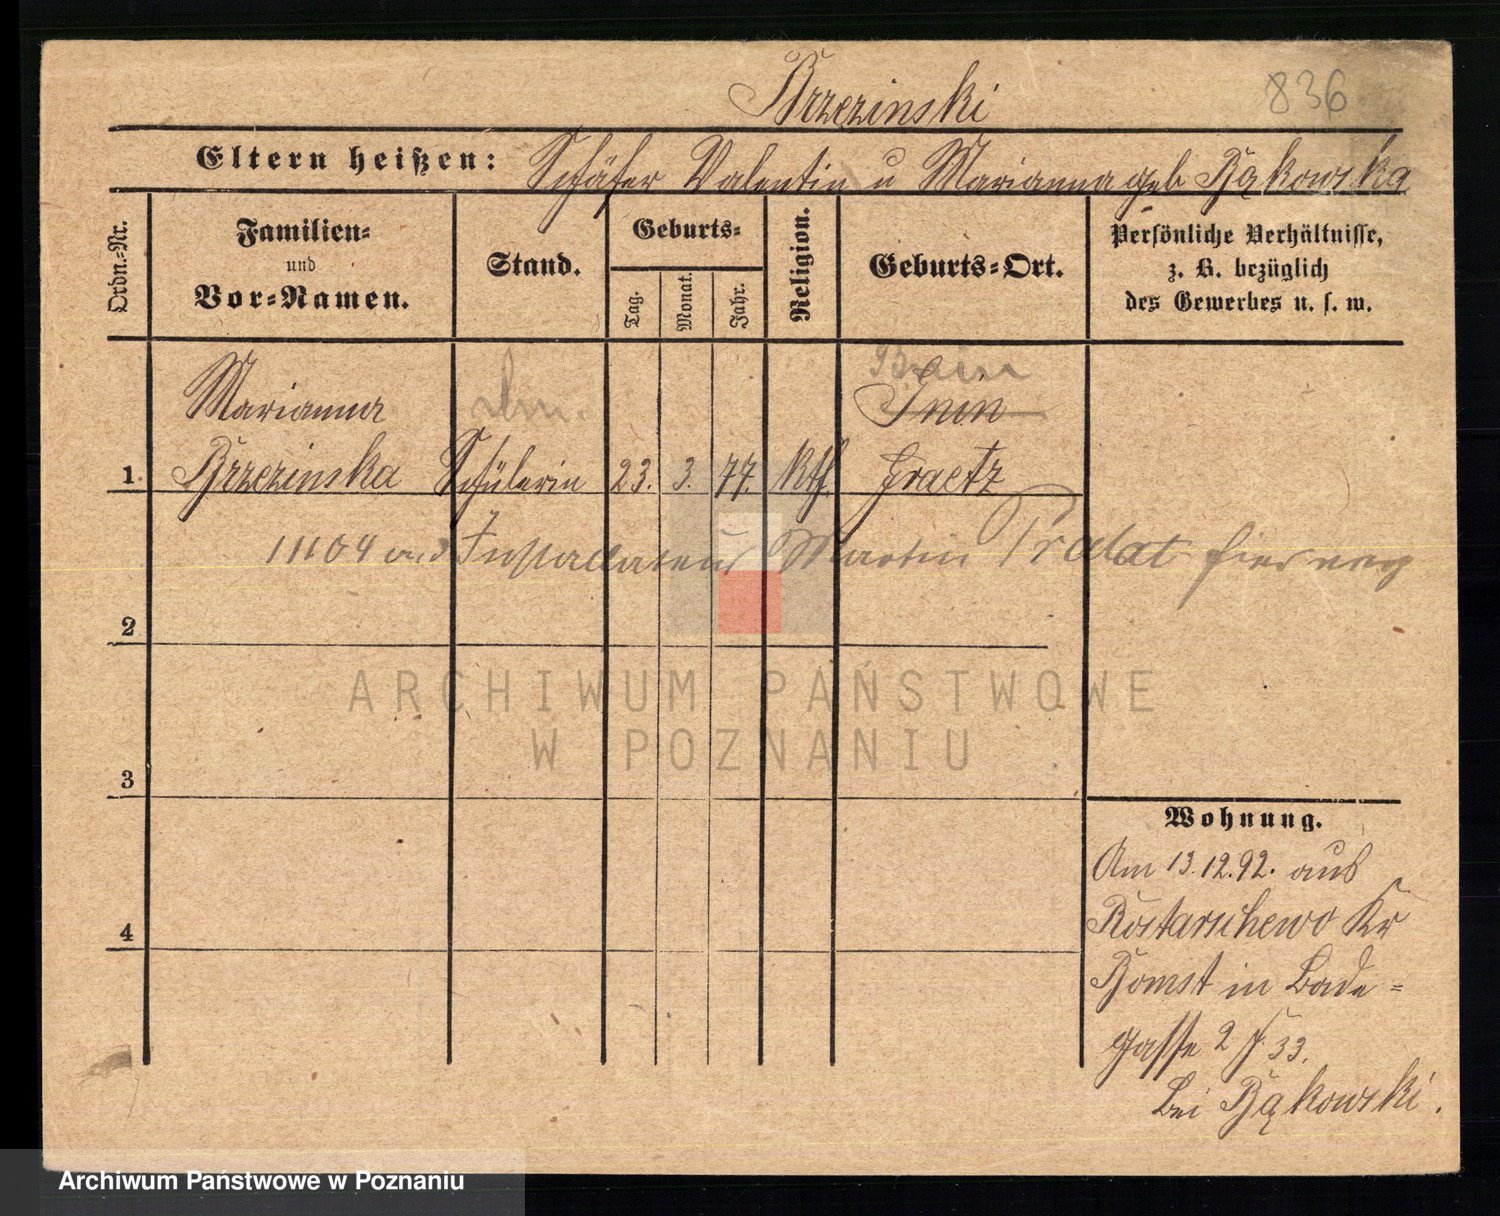 Brzezinski
836
Eltern heißen: Schäfer Valentin u Marianna geb Bąkowska
Ordn.-Nr.
Familien-
und
Vor-Namen.
Stand.
Geburts-
Tag.
Monat.
Jahr.
Religion.
Geburts-Ort.
Persönliche Verhältnisse,
z. B. bezüglich
des Gewerbes u. s. w.
Marianna
1. Brzezinska Schülerin 23. 3. 77. kth. Graetz
Martin Pralat
2
3
4
Wohnung.
Am 13.12.92. aus
Rostarschewo Kr
Bomst in Bade-
gasse 2 f 33.
bei Bąkowski.
ARCHIWUM PAŃSTWOWE
W POZNANIU
Archiwum Państwowe w Poznaniu